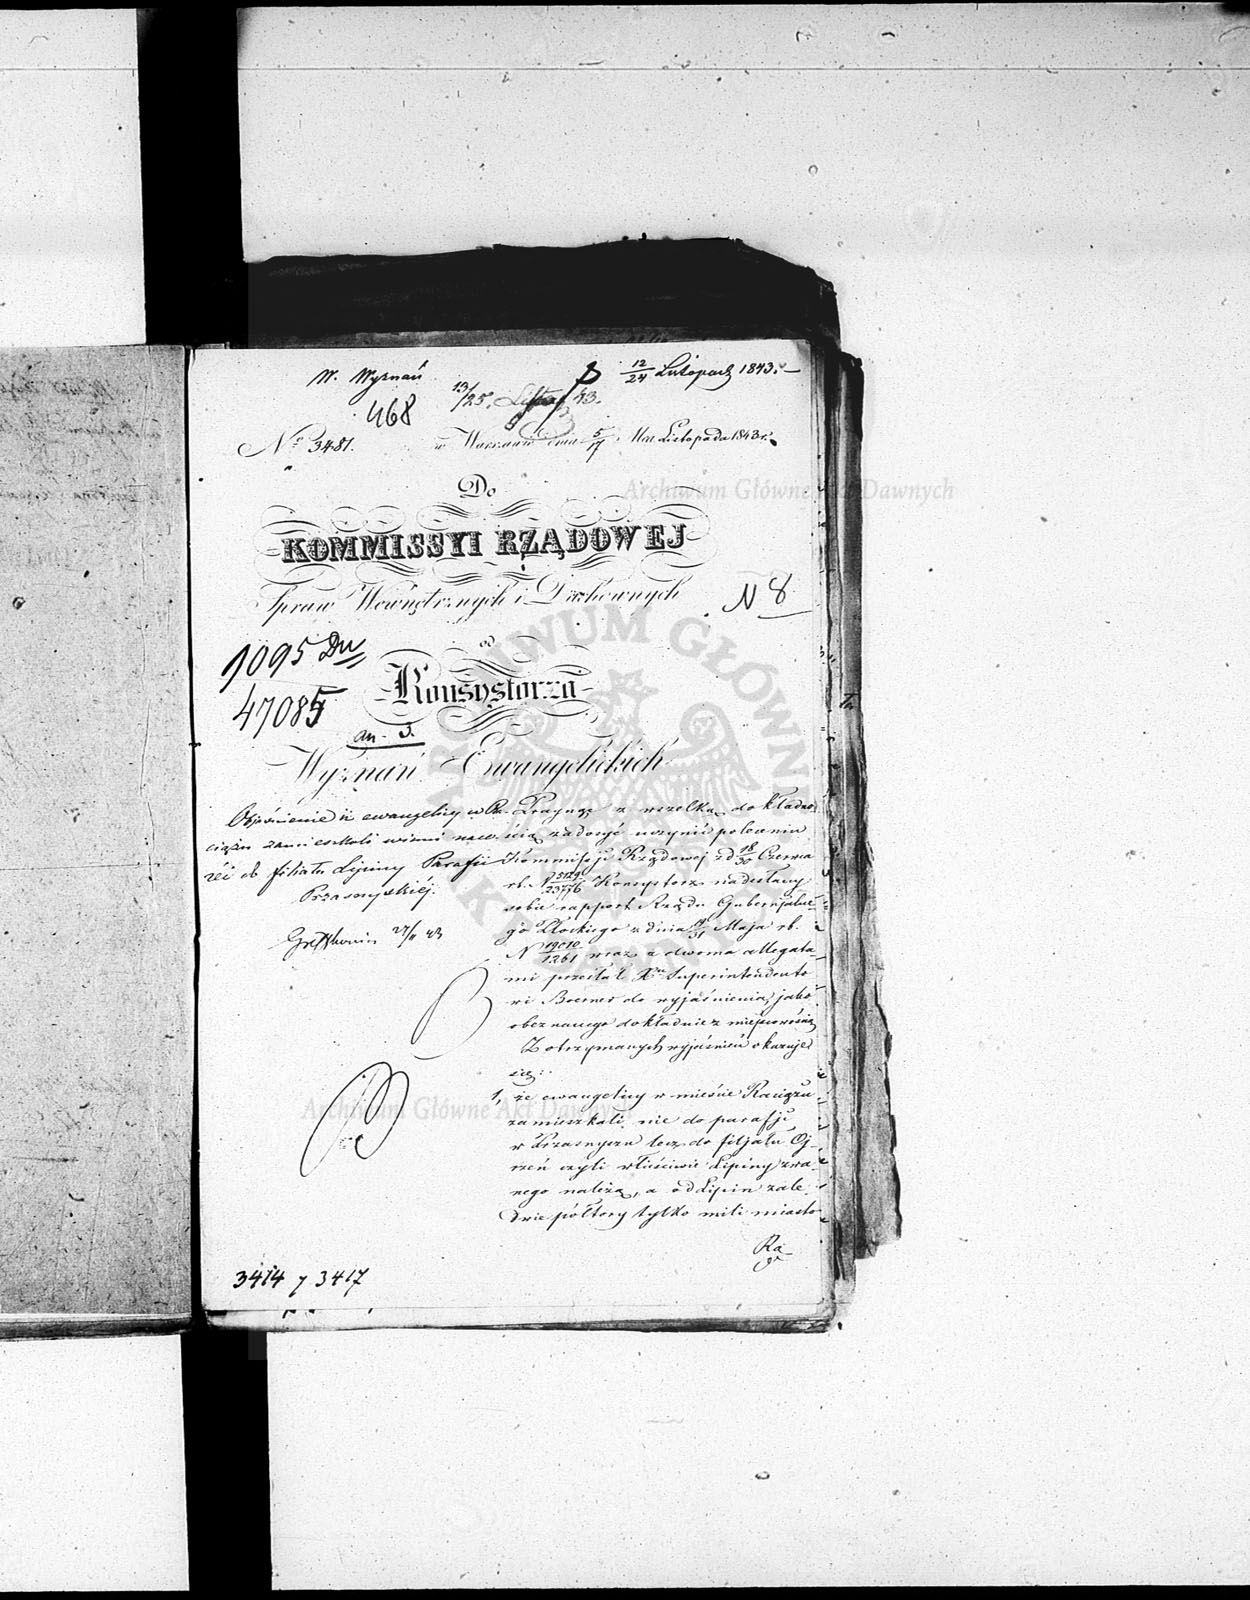 W. Wyznań
12/24 Listopad 1843.
13/25. 43.
468
№ 3481.
w Warszawie dnia 5/17 Mca Listopada 1843 r.
Do
KOMMISSYI RZĄDOWEJ
Spraw Wewnętrznych i Duchownych
N 8
1095 Du
47085
an. 3.
od
Konsystorza
Wyznań Ewangelickich
Objaśnienie iż ewangelicy w Ra-
ciążu zamieszkali winni nale-
żeć do filiału Lipiny Parafii
Przasnyskiéj.
27/11 43
Pragnąc z wszelką dokładno-
ścią zadosyć uczynić poleceniu
Kommissyi Rządowej z d 18/30 Czerwca
rb. N 5129/23776 Konsystorz nadesłany
sobie rapport Rządu Gubernialne-
go Płockiego z dnia 19/31 Maja rb.
N 19010/1261 wraz z dwoma allegata-
mi przesłał Xu Superintendento-
wi Boerner do wyjaśnienia, jako
obeznanego dokładnie z miejscowością
Z otrzymanych wyjaśnień okazuje
się:
1, że ewangelicy w mieście Raciążu
zamieszkali, nie do parafji
w Przasnyszu lecz do filjału Oj-
rzeń czyli właściwie Lipiny zwa-
nego należą, a od Lipin zale-
dwie półtory tylko mili miasto
Ra-
3414 y 3417
Archiwum Główne Akt Dawnych
Archiwum Główne Akt Dawnych
ARCHIWUM GŁÓWNE AKT DAWNYCH